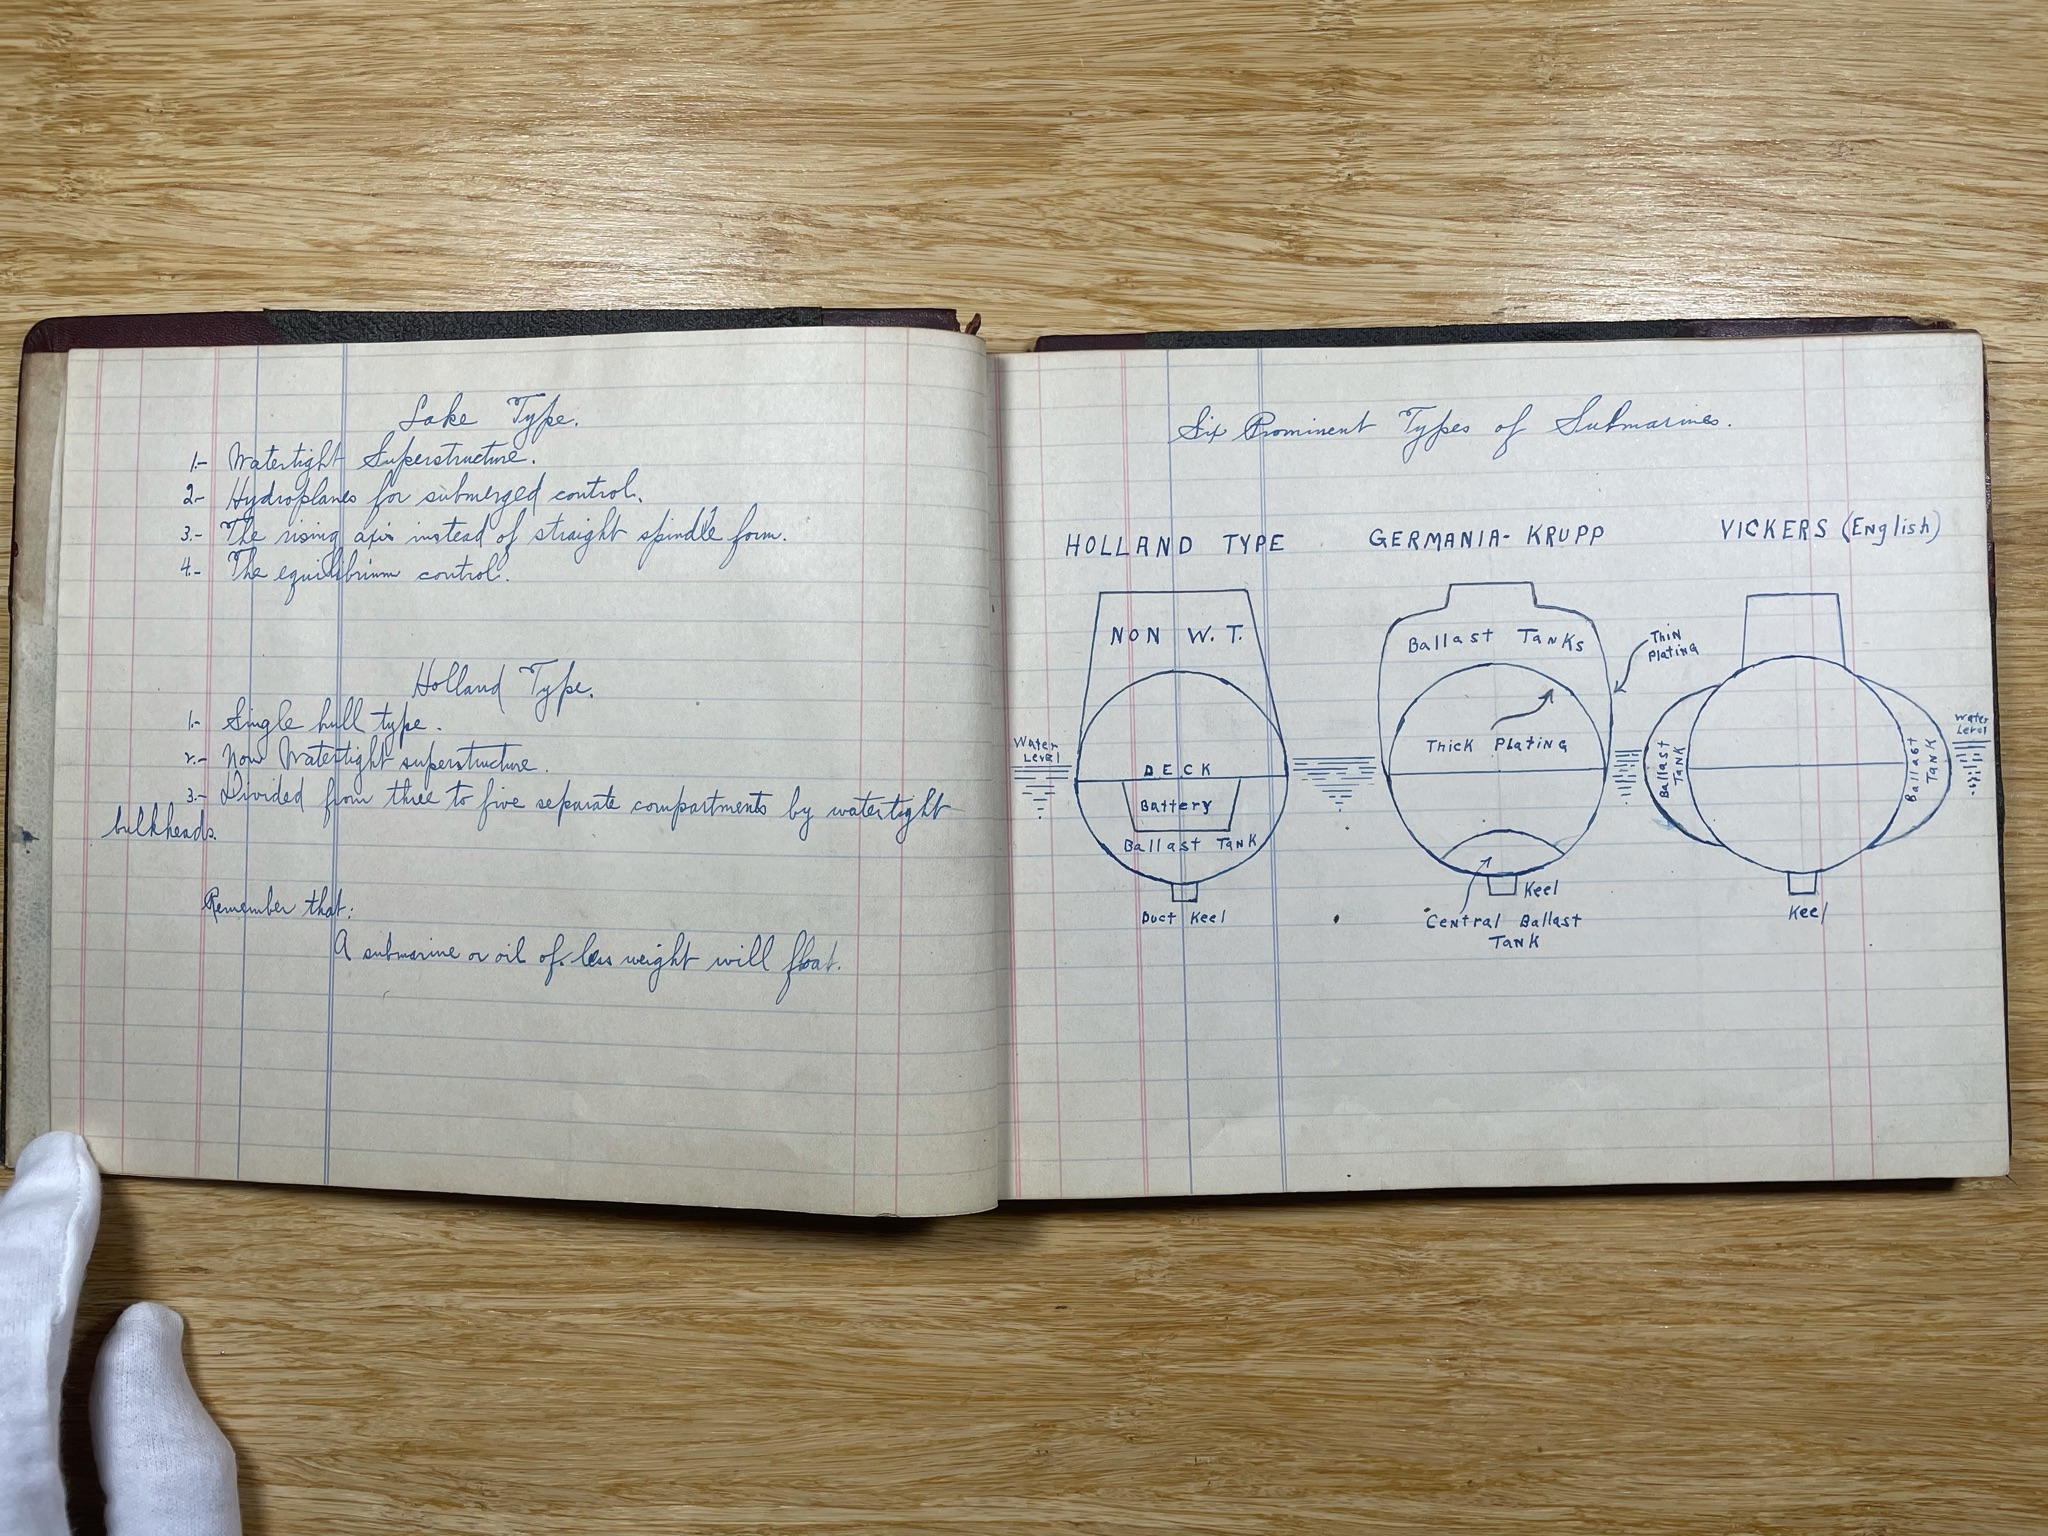 Lake Type.
1.- Watertight Superstructure.
2- Hydroplanes for submerged control.
3.- The rising axis instead of straight spindle form.
4.- The equilibrium control.
Holland Type.
1.- Single hull type.
2.- Non Watertight superstructure.
3.- Divided from three to five separate compartments by watertight
bulkheads.
Remember that:
A submarine or oil of less weight will float.
Six Prominent Types of Submarines.
HOLLAND TYPE
NON W.T.
Water
Level
DECK
Battery
Ballast Tank
Duct Keel
GERMANIA-KRUPP
Ballast Tanks
Thin
Plating
Thick Plating
Keel
Central Ballast
Tank
VICKERS (English)
Ballast
Tank
Ballast
Tank
Water
Level
Keel